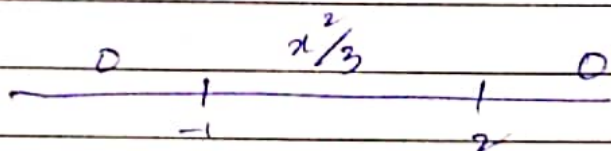 0 x²/3 0
-1 2